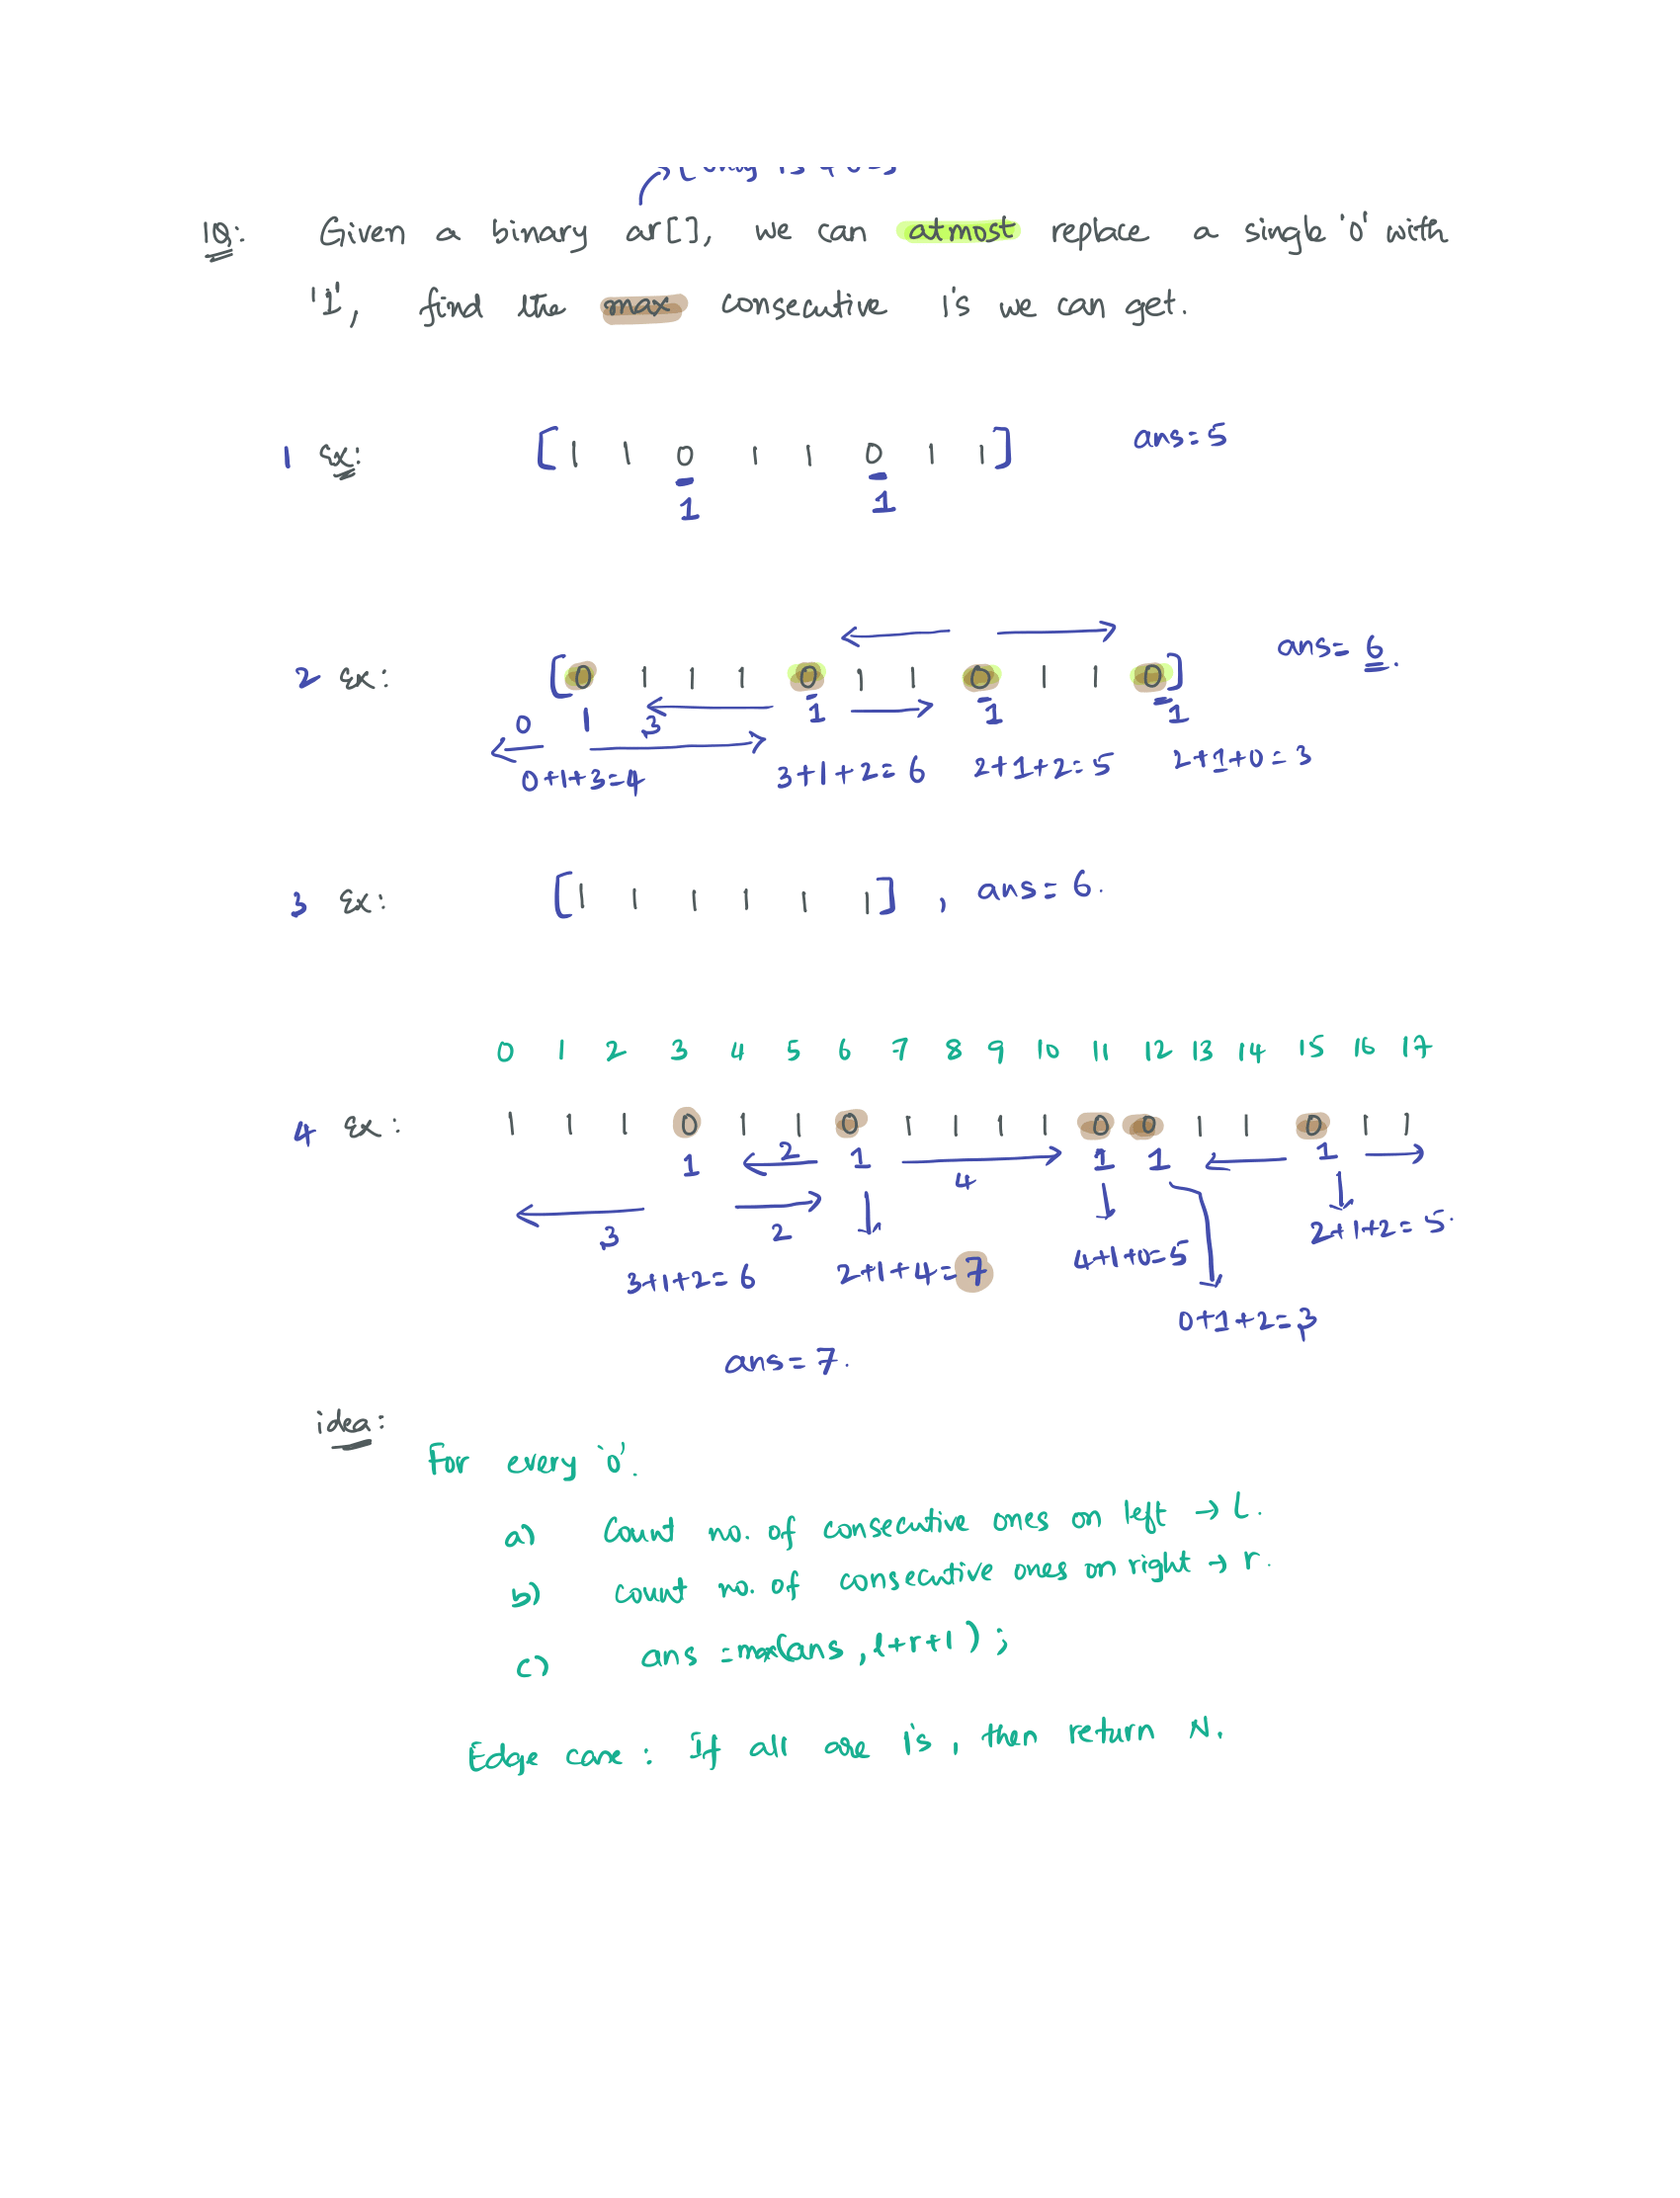 1Q: Given a binary ar[], we can atmost replace a single '0' with
'1', find the max consecutive 1's we can get.
1 Ex: [1 1 0 1 1 0 1 1] ans=5
1 1
2 Ex: [0 1 1 1 0 1 1 0 1 1 0] ans=6.
0 1 3 1 1 1
0+1+3=4 3+1+2=6 2+1+2=5 2+1+0=3
3 Ex: [1 1 1 1 1 1], ans=6.
0 1 2 3 4 5 6 7 8 9 10 11 12 13 14 15 16 17
4 Ex: 1 1 1 0 1 1 0 1 1 1 1 0 0 1 1 0 1 1
1 2 1 4 1 1 1
3 2
3+1+2=6 2+1+4=7 4+1+0=5 2+1+2=5.
0+1+2=3
ans=7.
idea:
For every '0'.
a) Count no. of consecutive ones on left → l.
b) count no. of consecutive ones on right → r.
c) ans = max(ans, l+r+1);
Edge case: If all are 1's, then return N.